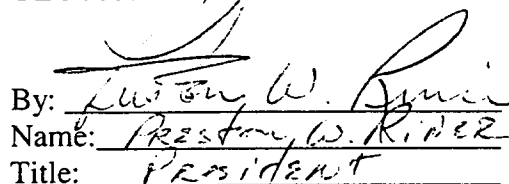 By:
Name: Preston W. Rider
Title: President